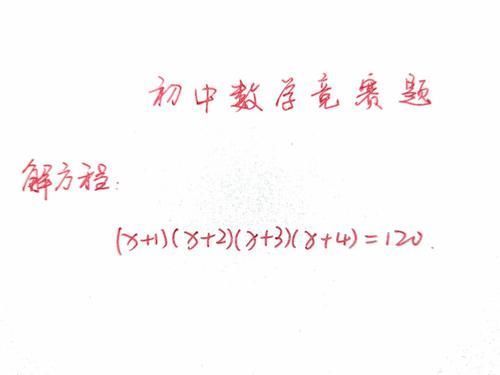 初中数学竞赛题
解方程:
(x+1)(x+2)(x+3)(x+4)=120.